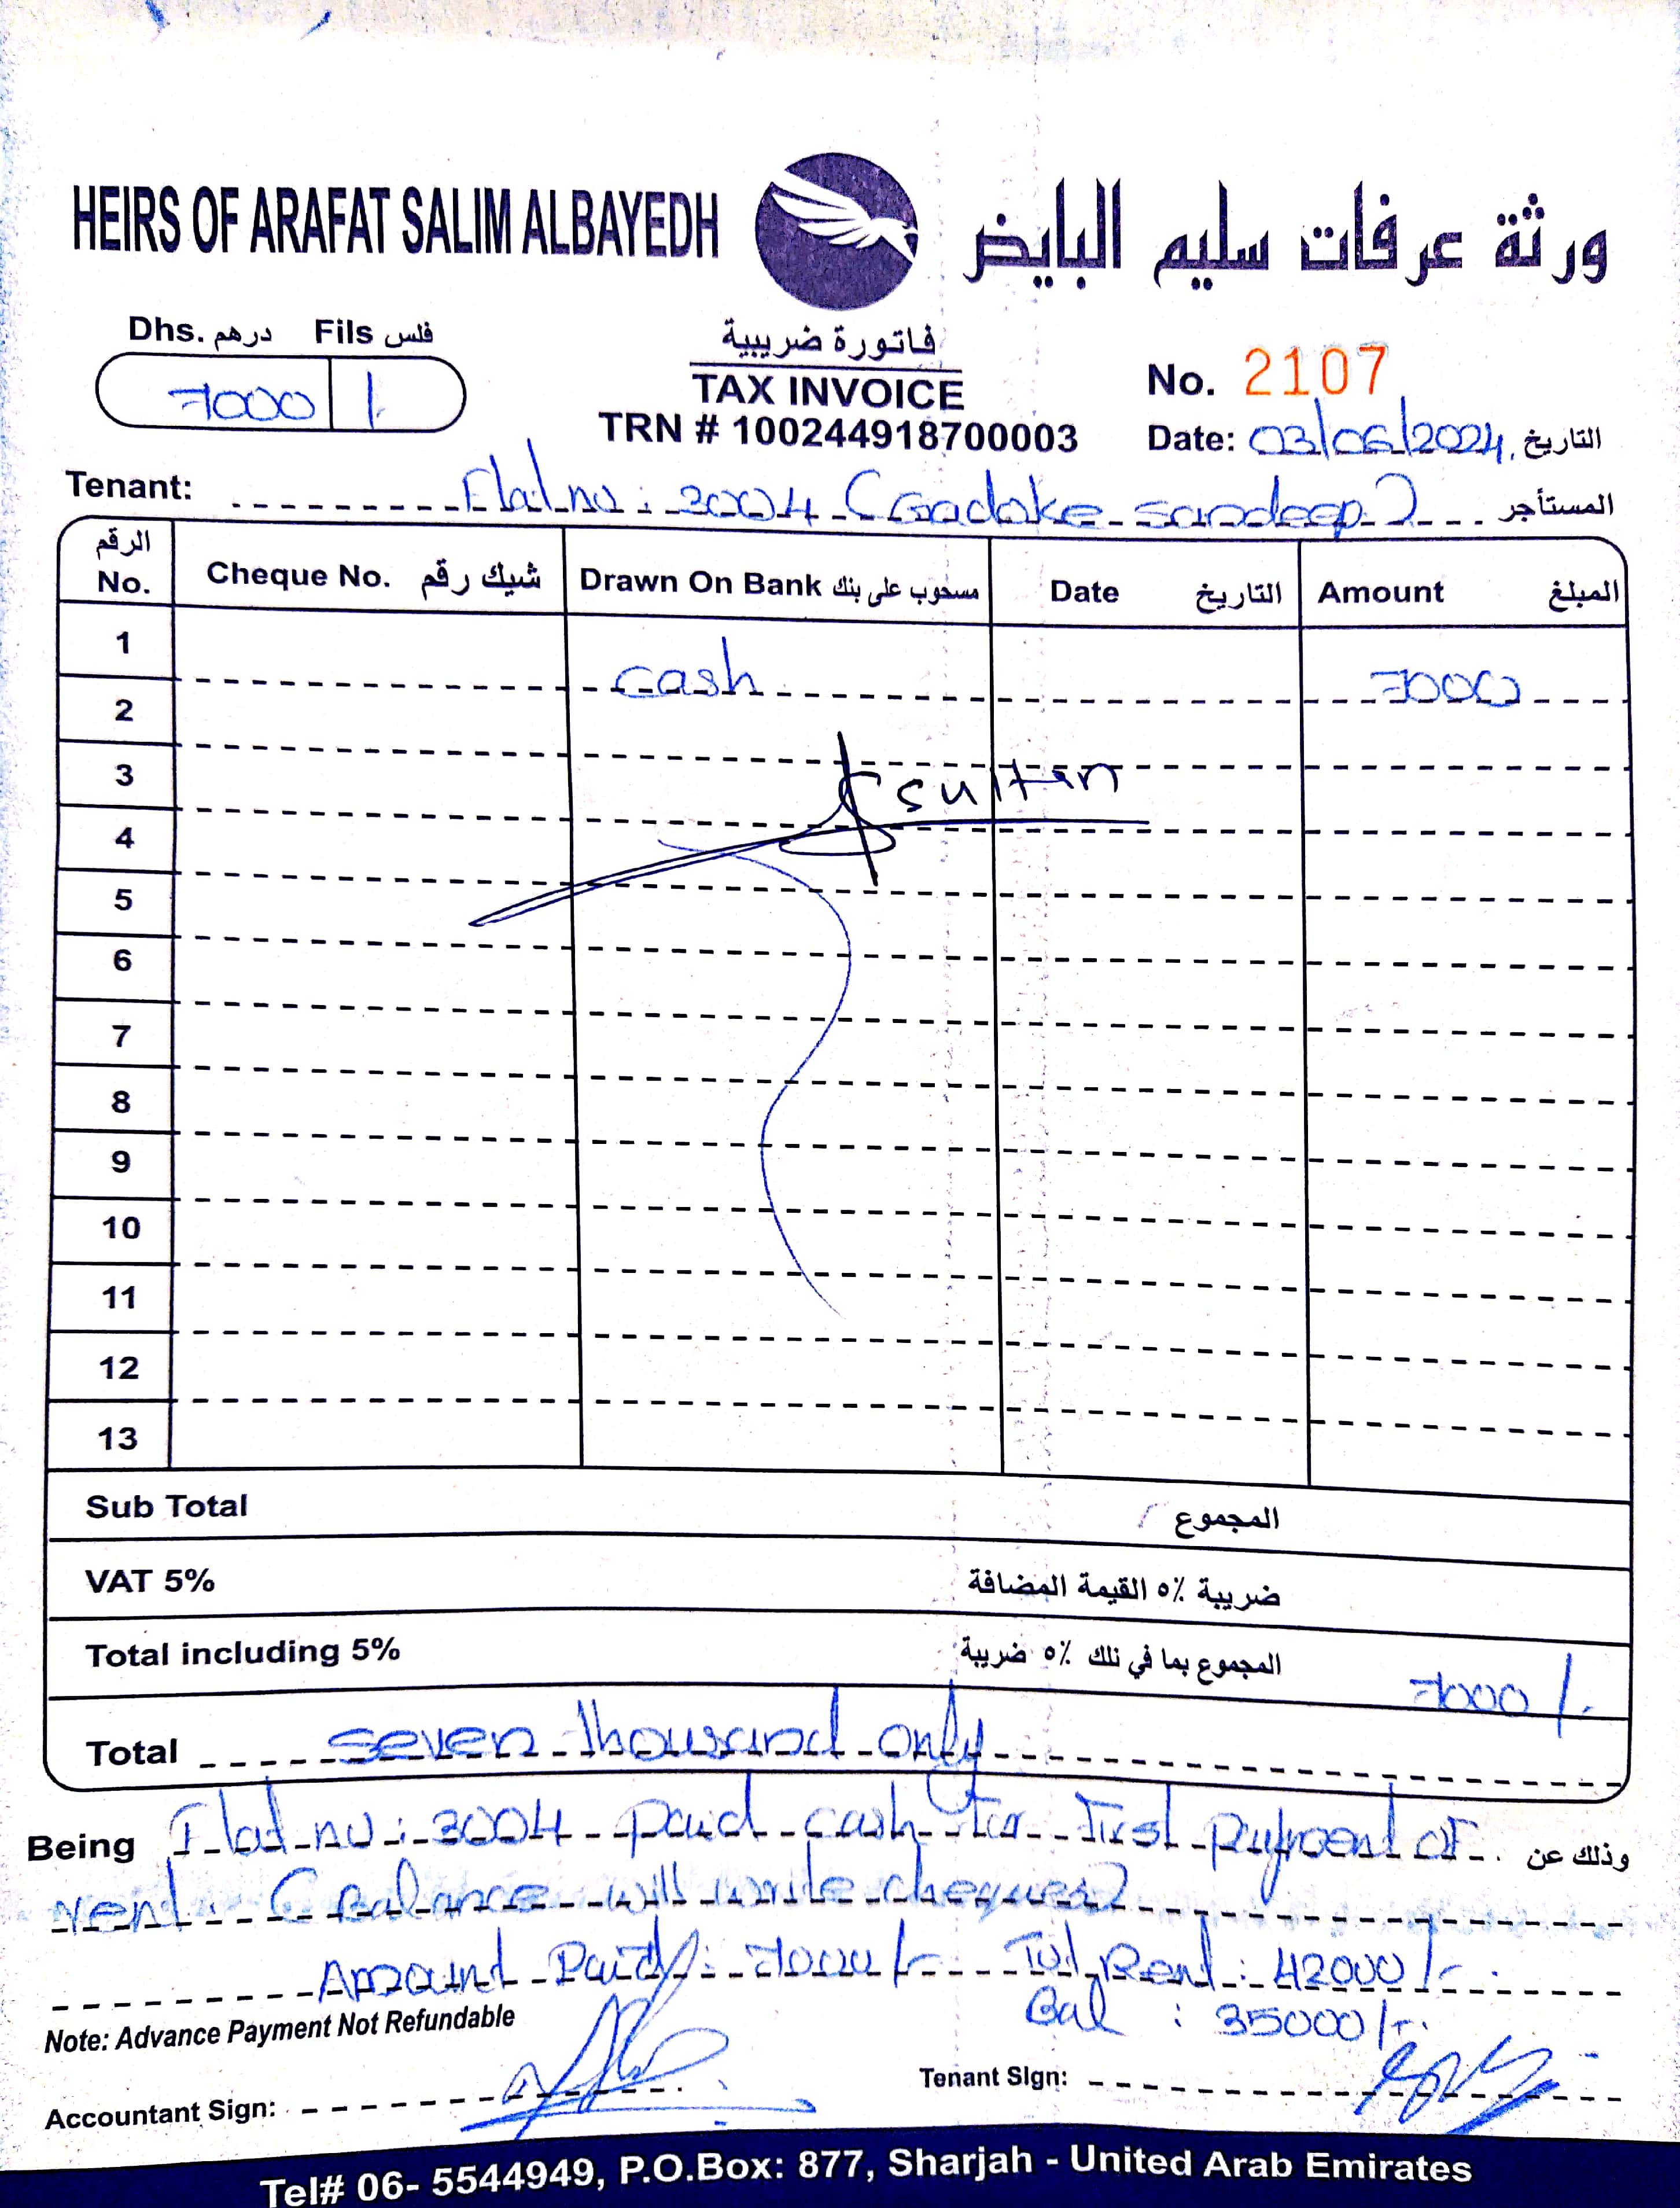 HEIRS OF ARAFAT SALIM ALBAYEDH ورثة عرفات سليم البايض
Dhs. درهم Fils فلس
7000 /-
فاتورة ضريبية
TAX INVOICE
TRN # 100244918700003
No. 2107
Date: 03/06/2024, التاريخ
Tenant: Flat no : 3004 (Gadake Sandeep) المستأجر
الرقم No. Cheque No. شيك رقم Drawn On Bank مسحوب على بنك Date التاريخ Amount المبلغ
1 cash 7000
2
3 sultan
4
5
6
7
8
9
10
11
12
13
Sub Total المجموع
VAT 5% ضريبة ٥٪ القيمة المضافة
Total including 5% المجموع بما في ذلك ٥٪ ضريبة 7000/-
Total seven thousand only
Being Flat no : 3004 paid cash for first payment of وذلك عن
rent. (Balance will write cheques)
Amount Paid : 7000/- Tot Rent : 42000/-
Bal : 35000/-
Note: Advance Payment Not Refundable
Accountant Sign: Tenant Sign:
Tel# 06- 5544949, P.O.Box: 877, Sharjah - United Arab Emirates